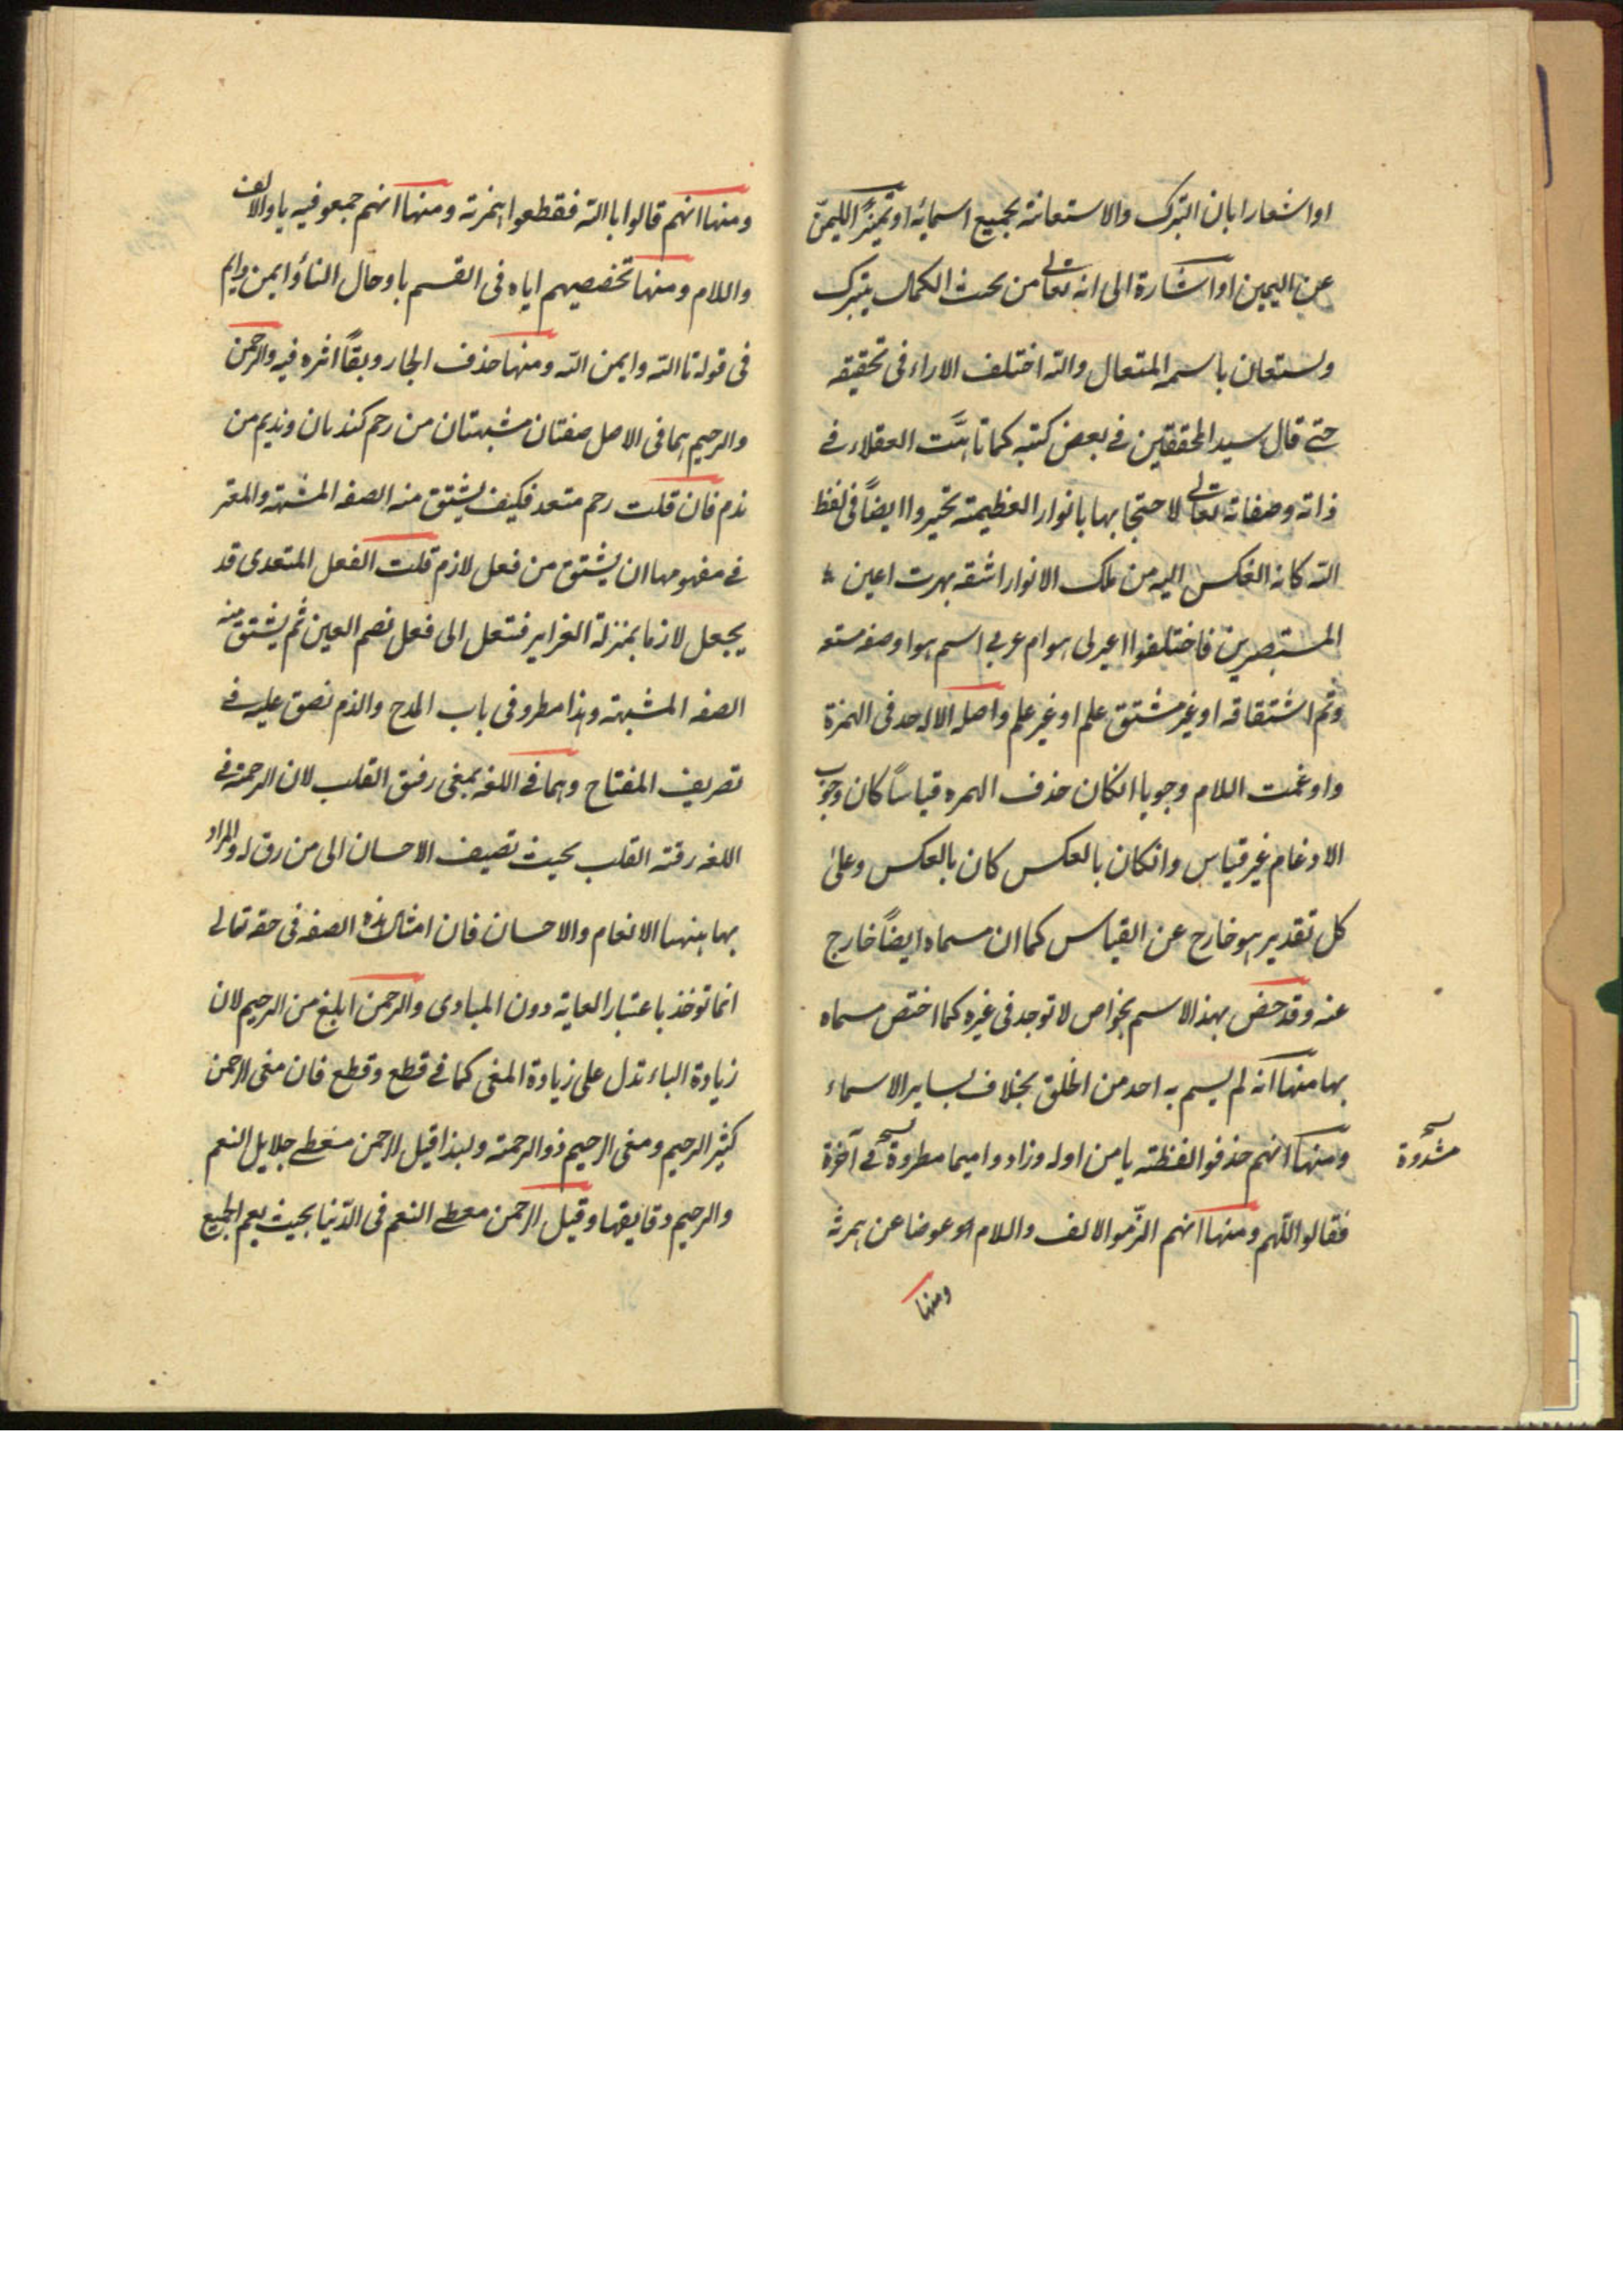 او اشعارا بان التبرك والاستعانة بجميع اسمائه او تميزًا لليمن
عن اليمين او اشارة الى انه تعالى من بحث الكمال يتبرك
ويستعان باسمه المتعال والله اختلف الاراء فى تحقيقه
حتى قال سيد المحققين فى بعض كتبه كما تاهت العقلاء فى
ذاته وصفاته تعالى لاحتجابها بانوار العظيمة تحيروا ايضاً فى لفظ
الله كانه انعكس اليه من تلك الانوار اشقه بهرت اعين
المستبصرين فاختلفوا اعبرى هو ام عربى اسم هو او صفه مشتق
وثم اشتقاقه او غير مشتق علم او غير علم واصله الاله حذفى الهمزة
وادغمت اللام وجوبا انكان حذف الهمزه قياساً كان وجوب
الادغام غير قياس وانكان بالعكس كان بالعكس وعلى
كل تقدير هو خارج عن القياس كما ان مسماه ايضاً خارج
عنه وقد خص بهذ الاسم بخواص لا توجد فى غيره كما اختص مسماه
بها منها انه لم يسم به احد من الخلق بخلاف لساير الاسماء
ومنها انهم حذفوا لفظته يا من اوله وزادوا ميما مطروة فى آخرة
مشدوة
فقالوا اللهم ومنها انهم الزموا الالف واللام عوضا عن همزته
ومنها
ومنها انهم قالوا يا الله فقطعوا همزته ومنها انهم جمعوا فيه يا والالف
واللام ومنها تخصيصهم اياه فى القسم با وحال التاؤ ايمن وايم
فى قوله تا الله وايمن الله ومنها حذف الجار وبقاً اثره فيه والرحمن
والرحيم هما فى الاصل صفتان مشبهتان من رحم كندمان ونديم من
ندم فان قلت رحم متعد فكيف يشتق منه الصفه المشبهة والمعتبر
فى مفهومها ان يشتق من فعل لازم قلت الفعل المتعدى قد
يجعل لازما بمنزلة الغرايز فتنقل الى فعل بضم العين ثم يشتق منه
الصفه المشبهة وهذا مطرو فى باب المدح والذم نص عليه فى
تصريف المفتاح وهما فى اللغه بمعنى رقيق القلب لان الرحمة فى
اللغه رقته القلب بحيث تضيف الاحسان الى من رق له والمراد
بها هنهنا الانعام والاحسان فان امثال هذه الصفه فى حقه تعالى
انما توخذ باعتبار الغاية دون المبادى والرحمن ابلغ من الرحيم لان
زيادة البناء تدل على زيادة المعنى كما فى قطع وقطع فان معنى الرحمن
كثير الرحيم ومعنى الرحيم ذو الرحمة ولهذا قيل الرحمن معطى جلايل النعم
والرحيم دقايقها وقيل الرحمن معطى النعم فى الدنيا بحيث يعم الجميع